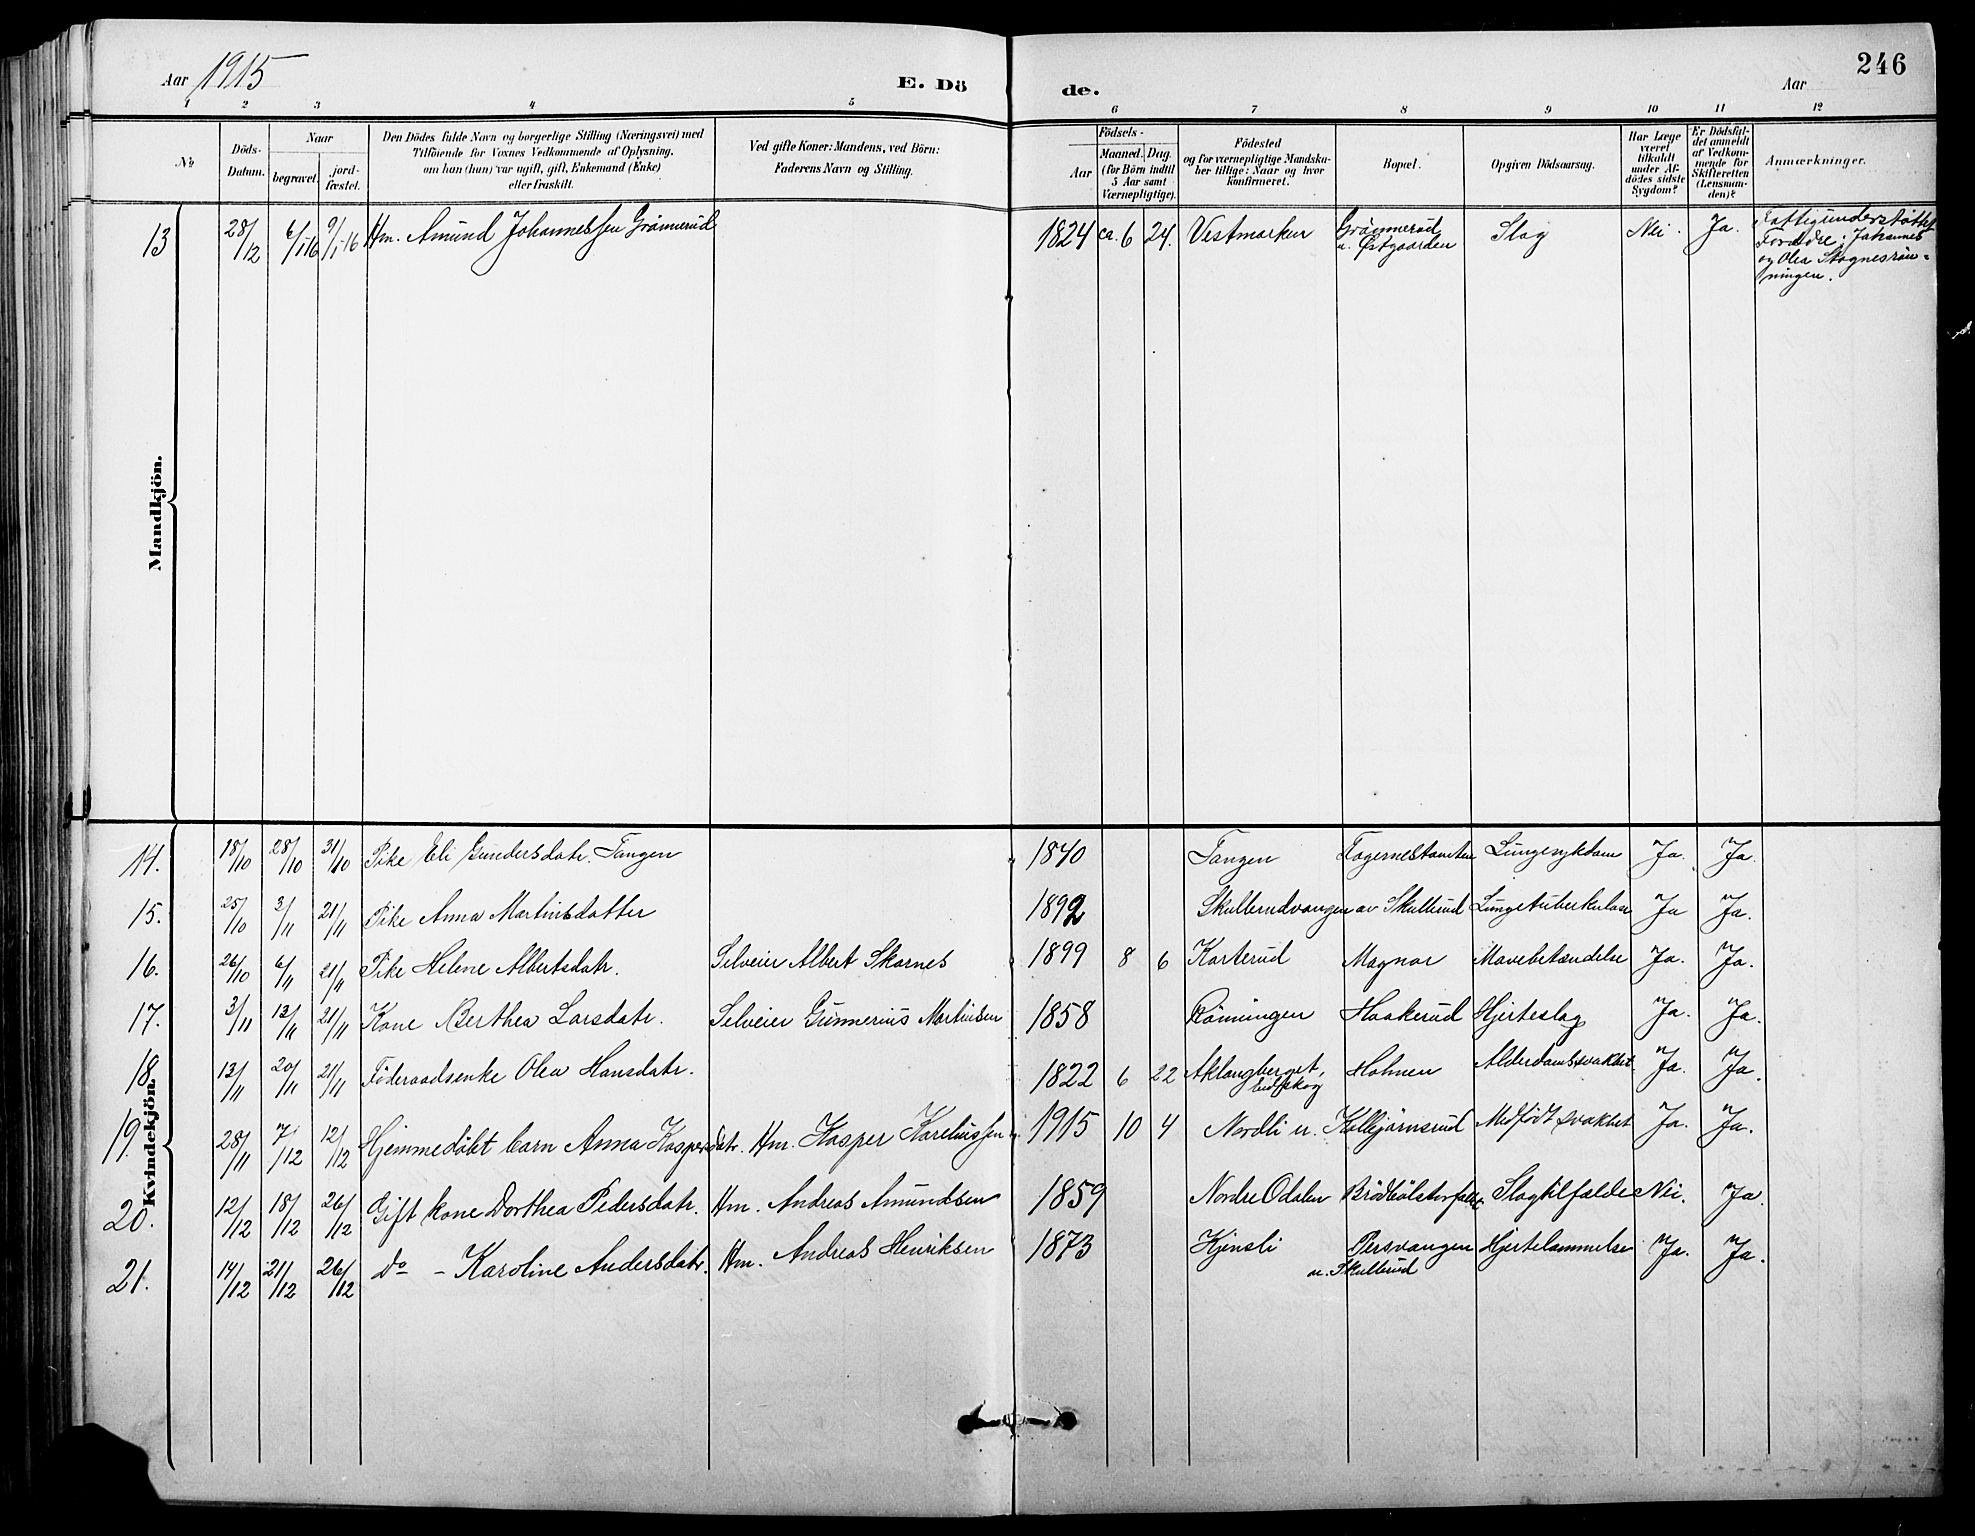 246
Aar 1915 E. Dö de. Aar
1 2 3 4 5 6 7 8 9 10 11 12
No Döds-Datum. Naar begravet. jord-fæstet. Den Dödes fulde Navn og borgerlige Stilling (Næringsvei) med Tilföiende for Voxnes Vedkommende af Oplysning, om han (hun) var ugift, gift, Enkemand (Enke) eller fraskilt. Ved gifte Koner: Mandens, ved Börn: Faderens Navn og Stilling. Födsels- Aar Maaned. Dag. (for Börn indtil 5 Aar samt Værnepligtige). Födested og for værnepligtige Mandskaber tillige: Naar og hvor konfirmeret. Bopæl. Opgiven Dödsaarsag. Har Læge været tilkaldt under Afdödes sidste Sygdom? Er Dödsfaldet anmeldt af Vedkommende for Skifteretten (Lensmanden)? Anmærkninger.
Mandkjön.
13 28/12 6/1 16 9/1-16 Hm. Amund Johannessen Grønnerud 1824 ca. 6 24. Vestmarken Grønnerud u. Østgaarden Slag Nei. Ja. Fattigunderstøttet
Forældre: Johannes
og Olea Stognesrøn-
ningen.
Kvindekjön.
14. 18/10 28/10 31/10 Pike Eli Gundersdatr. Tangen 1840 Tangen Lungesykdom Ja. Ja.
15. 25/10 3/11 21/11 Pike Anna Martinsdatter 1892 Skullerudvangen av Skullerud Lungetuberkulose Ja Ja.
16. 26/10 6/11 21/11 Pike Helene Albertsdatr. Selveier Albert Skarnes 1899 8 6 Korterud Magnor Mavebetændelse Ja. Ja.
17. 3/11 13/11 21/11 Kone Berthea Larsdatr. Selveier Gunnerius Martinsen 1858 Rönningen Haakerud Hjerteslag Ja. Ja.
18. 13/11 20/11 21/11 Föderaadsenke Olea Hansdatr. 1822 6 22 Aklangberget, Eidskog Holmen Alderdomssvakhet Ja. Ja.
19. 28/11 7/12 12/12 Hjemmedöbt barn Anna Kaspersdatr. Hm. Kasper Kareliussen 1915 10 4 Nordli u. Kolbjörnsrud Medfödt svakhet Ja. Ja.
20. 12/12 18/12 26/12 Gift kone Dorthea Pedersdatr. Hm. Andreas Amundsen 1859 Nordre Odalen Slagtilfælde Nei. Ja.
21. 14/12 21/12 26/12 do - Karoline Andersdatr. Hm. Andreas Henriksen 1873 Kjensli Persvangen u. Skullerud Hjertelammelse Ja. Ja.